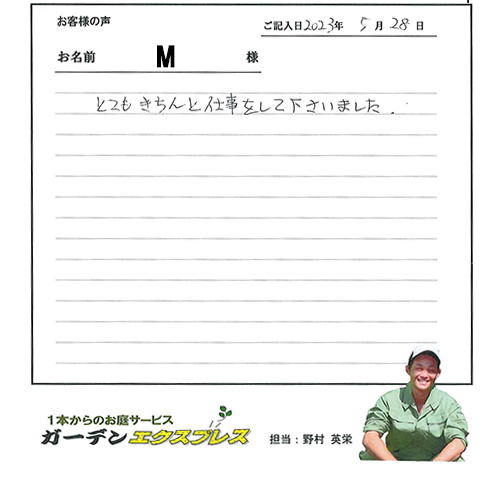 お客様の声
ご記入日2023年 5月 28日
お名前 M 様
とてもきちんと仕事をして下さいました.
1本からのお庭サービス
ガーデンエクスプレス
担当：野村 英栄